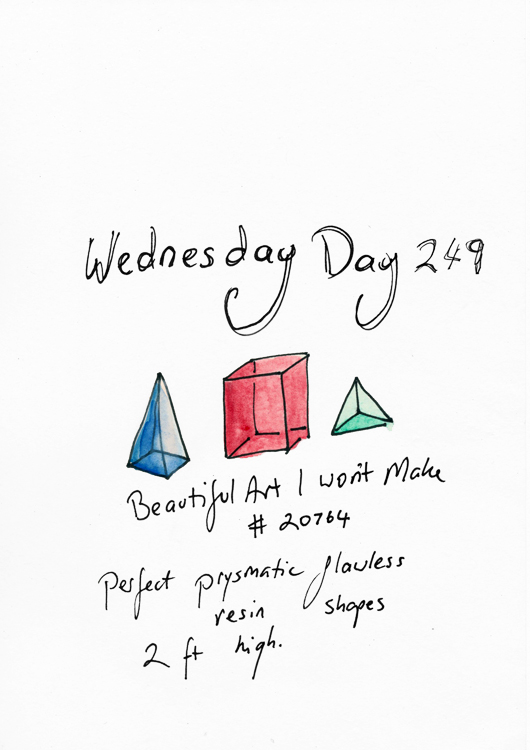 Wednesday Day 249
Beautiful Art I won't Make
# 20764
Perfect prysmatic flawless
resin shapes
2 ft high.